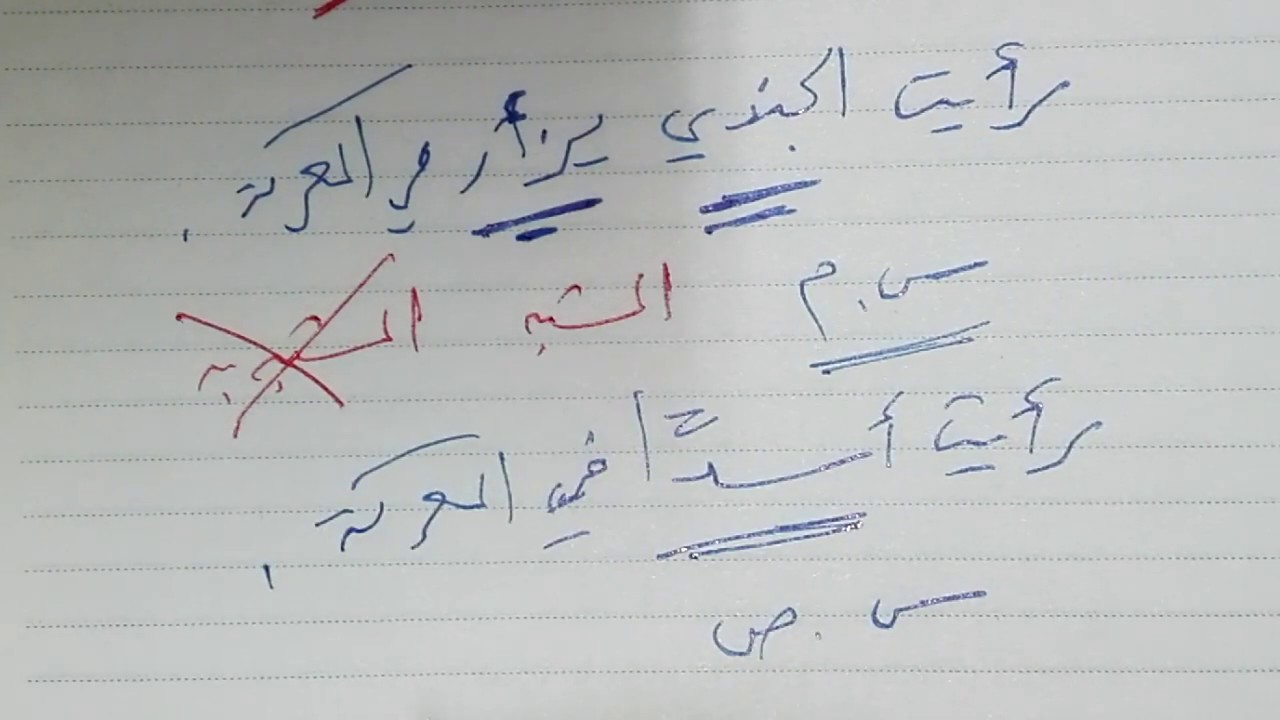 رأيت الجندي يزأر في المعركة .
س . م المشبه المشبه به
رأيت أسدًا في المعركة .
س . ص